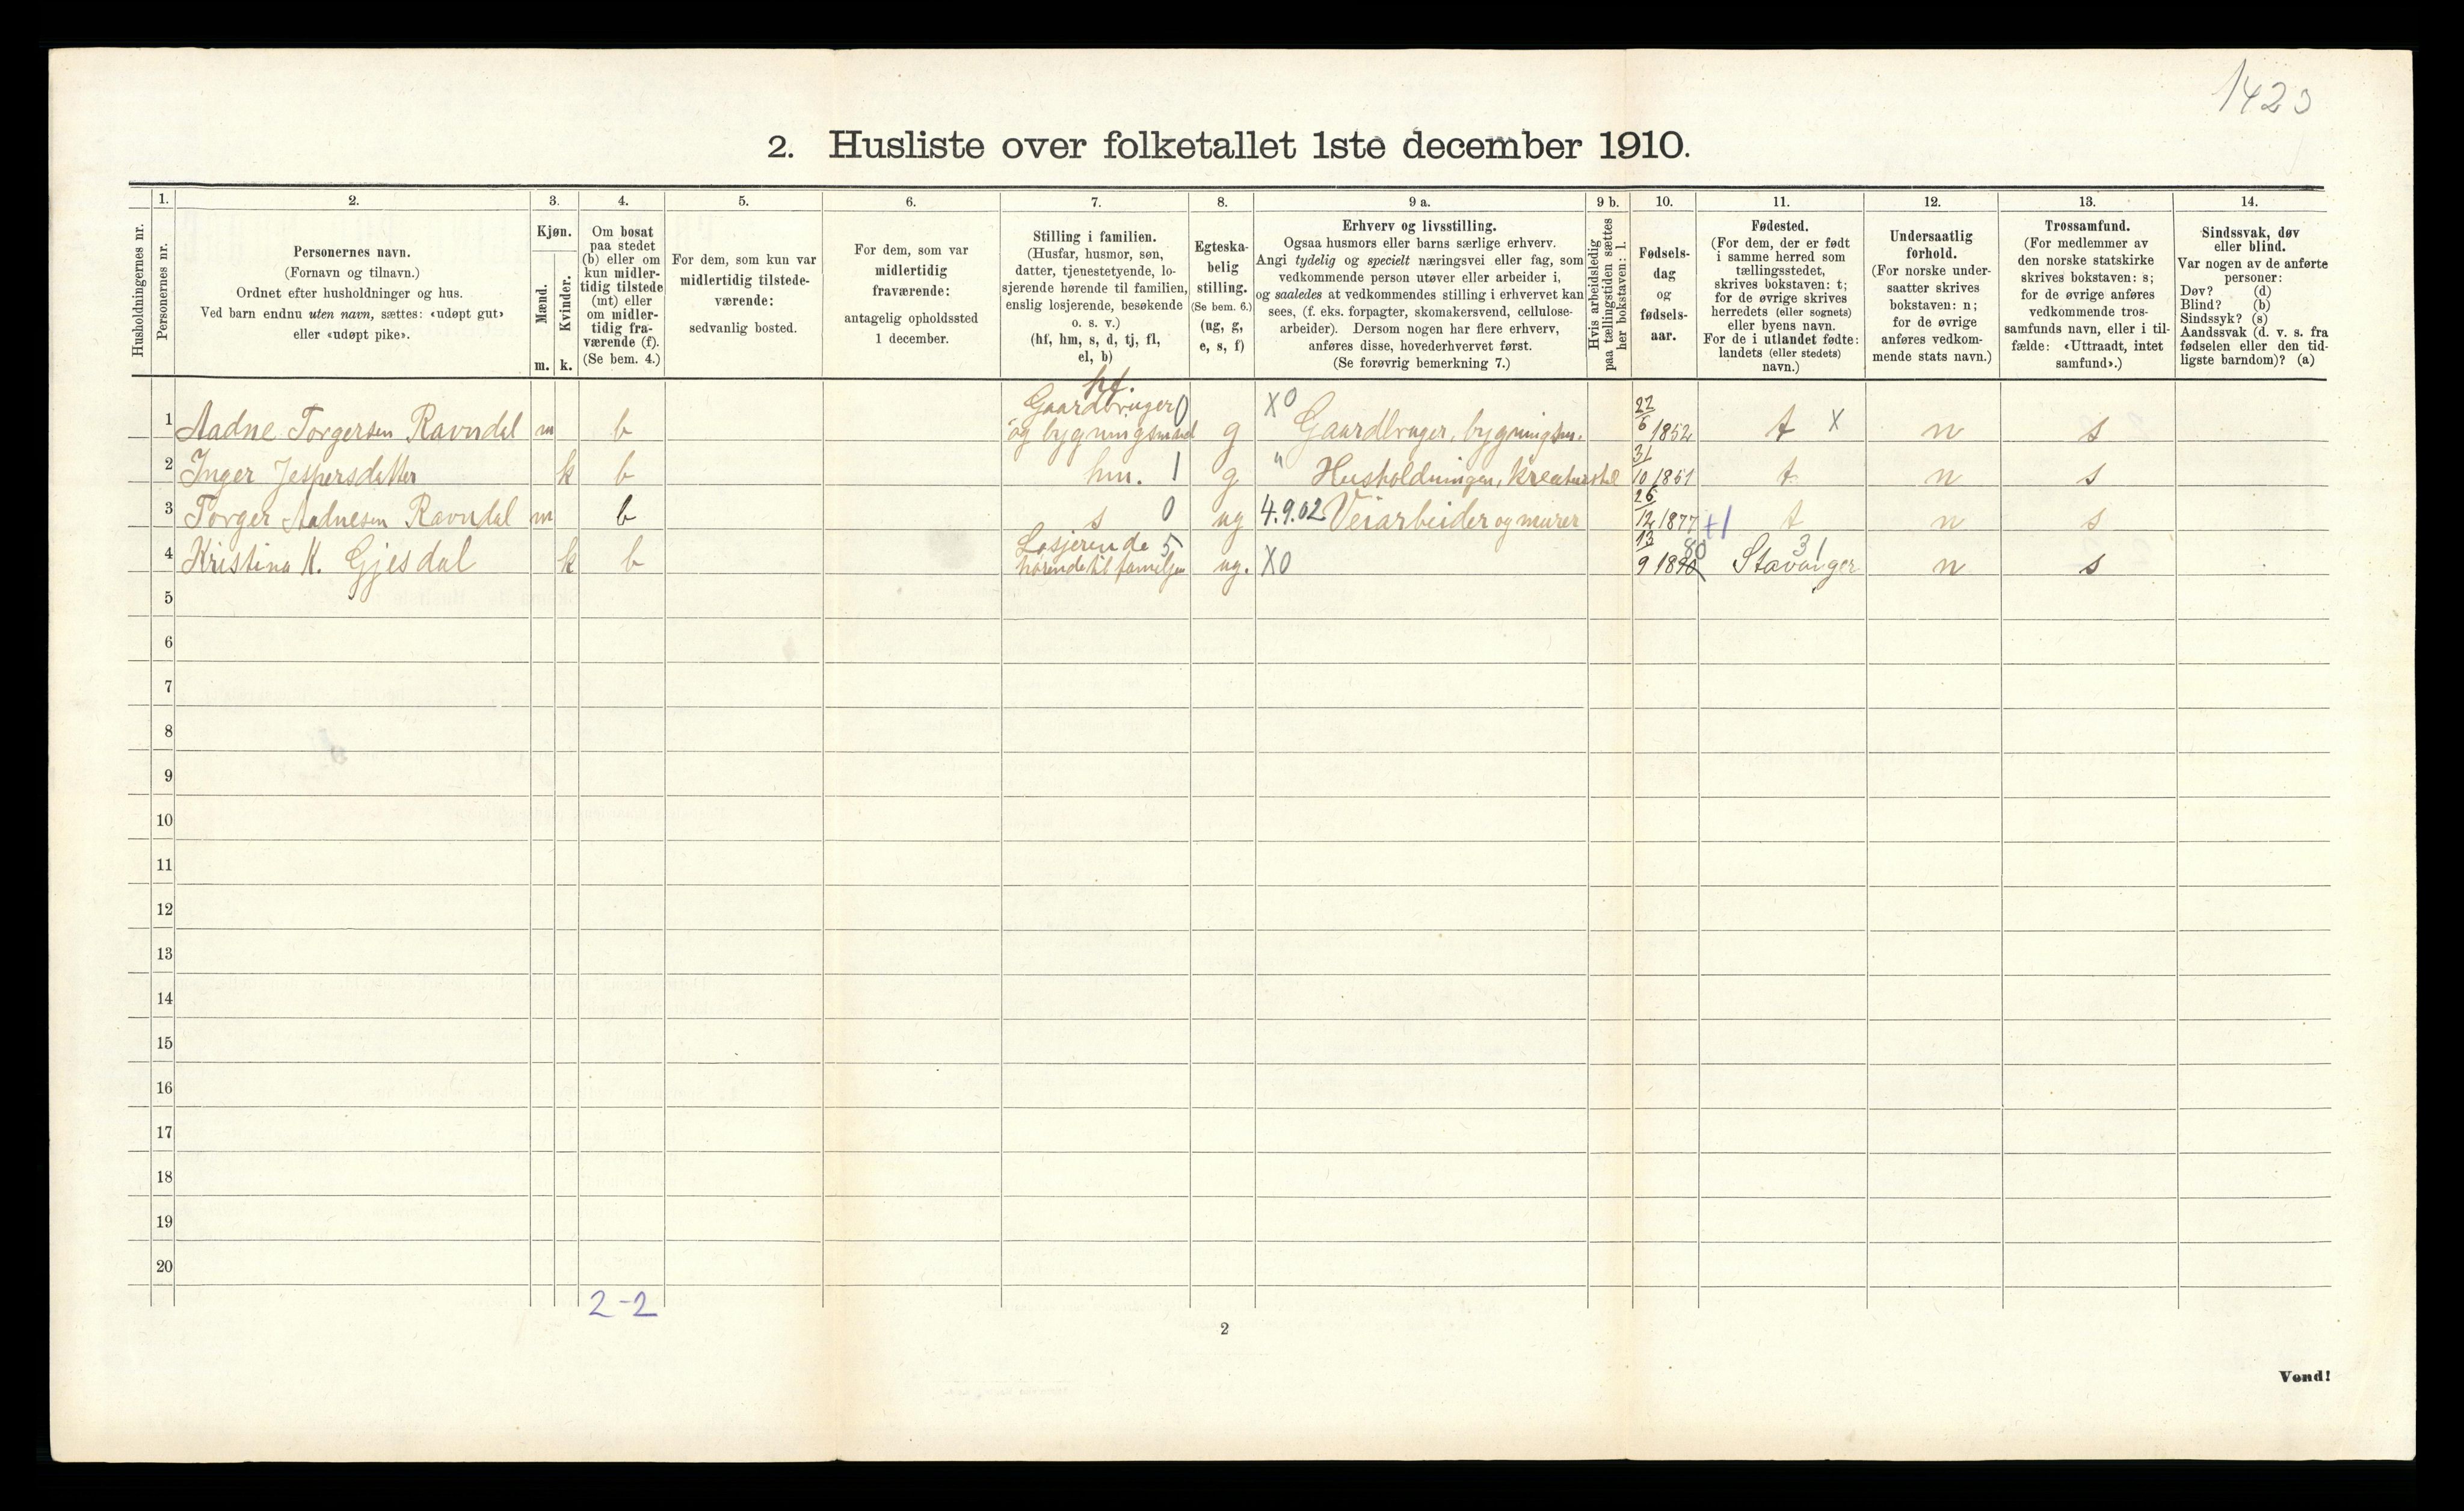 1423
2. Husliste over folketallet 1ste december 1910.
Husholdningernes nr.
1.
Personernes nr.
2.
Personernes navn.
(Fornavn og tilnavn.)
Ordnet efter husholdninger og hus.
Ved barn endnu uten navn, sættes: «udøpt gut»
eller «udøpt pike».
3.
Kjøn.
Mænd.
Kvinder.
m. k.
4.
Om bosat
paa stedet
(b) eller om
kun midler-
tidig tilstede
(mt) eller
om midler-
tidig fra-
værende (f).
(Se bem. 4.)
5.
For dem, som kun var
midlertidig tilstede-
værende:
sedvanlig bosted.
6.
For dem, som var
midlertidig
fraværende:
antagelig opholdssted
1 december.
7.
Stilling i familien.
(Husfar, husmor, søn,
datter, tjenestetyende, lo-
sjerende hørende til familien,
enslig losjerende, besøkende
o. s. v.)
(hf, hm, s, d, tj, fl,
el, b)
8.
Egteska-
belig
stilling.
(Se bem. 6.)
(ug, g,
e, s, f)
9 a.
Erhverv og livsstilling.
Ogsaa husmors eller barns særlige erhverv.
Angi tydelig og specielt næringsvei eller fag, som
vedkommende person utøver eller arbeider i,
og saaledes at vedkommendes stilling i erhvervet kan
sees, (f. eks. forpagter, skomakersvend, cellulose-
arbeider). Dersom nogen har flere erhverv,
anføres disse, hovederhvervet først.
(Se forøvrig bemerkning 7.)
9 b.
Hvis arbeidsledig
paa tællingstiden sættes
her bokstaven: l.
10.
Fødsels-
dag
og
fødsels-
aar.
11.
Fødested.
(For dem, der er født
i samme herred som
tællingsstedet,
skrives bokstaven: t;
for de øvrige skrives
herredets (eller sognets)
eller byens navn.
For de i utlandet fødte:
landets (eller stedets)
navn.)
12.
Undersaatlig
forhold.
(For norske under-
saatter skrives
bokstaven: n;
for de øvrige
anføres vedkom-
mende stats navn.)
13.
Trossamfund.
(For medlemmer av
den norske statskirke
skrives bokstaven: s;
for de øvrige anføres
vedkommende tros-
samfunds navn, eller i til-
fælde: «Uttraadt, intet
samfund».)
14.
Sindssvak, døv
eller blind.
Var nogen av de anførte
personer:
Døv? (d)
Blind? (b)
Sindssyk? (s)
Aandssvak (d. v. s. fra
fødselen eller den tid-
ligste barndom)? (a)
hf.
Gaardbruger 0 X0 22
1 Aadne Torgersen Ravndal m b og bygningsmand g Gaardbruger, bygningsm. 6 1852 t X n s
31
2 Inger Jespersdatter k b hm. 1 g " Husholdningen, kreaturstel 10 1851 t n s
26
3 Torger Aadnesen Ravndal m b s 0 ug 4.9.02 Veiarbeider og murer 12 1877 +1 t n s
Losjerende 5 13 80 31
4 Kristina K. Gjesdal k b hørende til familjen ug. X0 9 1890 Stavanger n s
5
6
7
8
9
10
11
12
13
14
15
16
17
18
19
20
2-2
2
Vend!